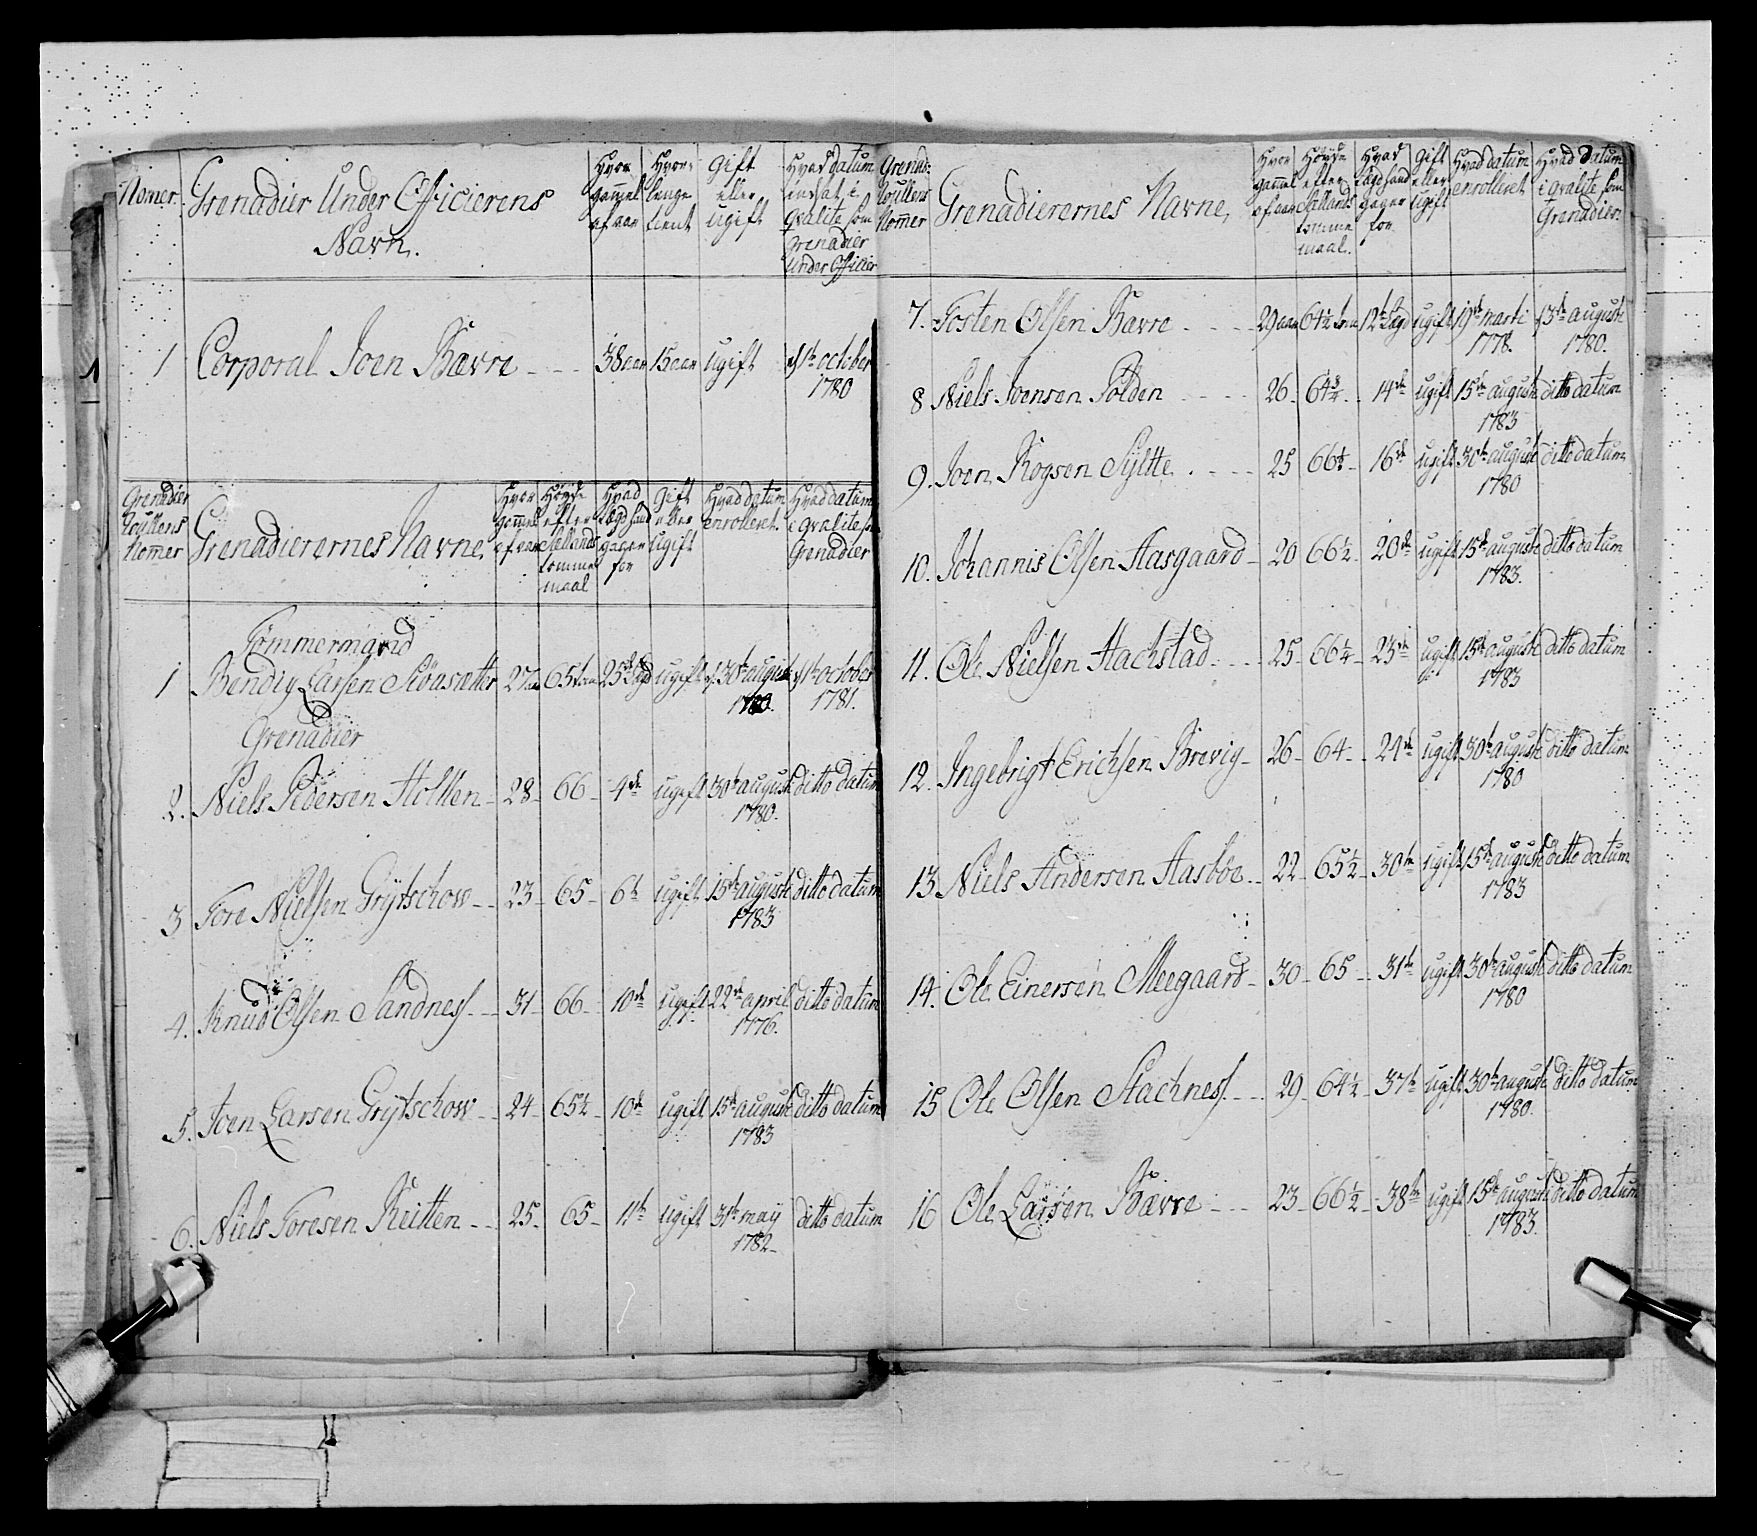 Nomer.
Grenadier Under Officierens
Navn.
Hvor gammel af aar
Hvor længe tient
Gift eller ugift
Hvad datum indsat i qvalite som Grenadier Under Officier
1 Corporal Joen Bævre 38 aar 15 aar ugift d 1te october
1780
Grenadier Roullens Nomer
Grenadierernes Navne
Hvor gammel af aar
Høyde efter Siellands tomme maal
Hvad Lægd hand gager for
Gift eller ugift
Hvad datum enrolleret
Hvad datum i qvalite som Grenadier
Tømmermand
1 Bendix Larsen 27 aar 65 tom 25de Lægd ugift d 30te august d 1te october
1780. 1781.
Grenadier
2. Niels Pedersen Holten 28 66 4de ugift 30te augusti ditto datum
1780.
3 Tore Nielsen Grytschow 23 65 6te ugift 15de augusti ditto datum
1783
4. Knud Olsen Sandnes 31 66 10de ugift 22de april ditto datum
1776.
5. Joen Larsen Grytschow 24 65½ 10de ugift 15de augusti ditto datum
1783
6. Niels Toresen Keitten 25 65 11te ugift 31te may ditto datum
1782
Grenad: Roullens Nomer
Grenadierernes Navne
Hvor gammel af aar
Høyde efter Siellands tomme maal.
Hvad Lægd hand gager for
Gift eller ugift
Hvad datum enrolleret
Hvad datum i qvalite som Grenadier
7. Tosten Olsen Bævre 29 aar 64½ tom 12te Lægd ugift 19de marti 13te augusti
1778. 1780.
8 Niels Joensen Polden 26 64¾ 14de ugift 15de augusti ditto datum
1783
9. Joen Sylte 25 66½ 16de ugift 30te augusti ditto datum
1780
10. Johannis Olsen Aasgaard 20 66½ 20de ugift 15de augusti ditto datum
1783.
11. Ole Nielsen Hachstad 25 66¼ 23de ugift 15de augusti ditto datum
1783
12. Ingebrigt Erichsen Brevig 26 64 24de ugift 30te augusti ditto datum
1780
13 Niels Andersen Aasbøe 22 65½ 30te ugift 15de augusti ditto datum
1783
14. Ole Einersen Meegaard 30 65 31te ugift 30te augusti ditto datum
1780
15 Ole Olsen Hachnes 29 64½ 37te ugift 30te augusti ditto datum
1780.
16 Ole Larsen Bævre 23 66½ 38te ugift 15de augusti ditto datum
1783.